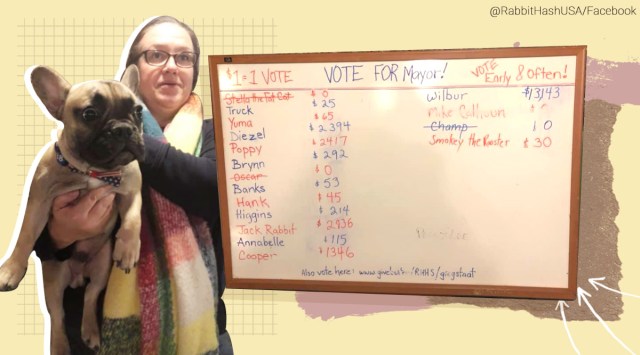 @RabbitHashUSA/Facebook
$1 = 1 VOTE VOTE FOR Mayor! VOTE Early & Often!
Stella the Fat Cat $ 0
Truck $ 25
Yuma $ 65
Diezel $ 2394
Poppy $ 2417
Brynn $ 292
Oscar $ 0
Banks $ 53
Hank $ 45
Higgins $ 214
Jack Rabbit $ 2836
Annabelle $ 115
Cooper $ 1346
Wilbur $13,143
Mike Calhoun $
Champ 0
Smokey the Rooster $ 30
Also vote here: